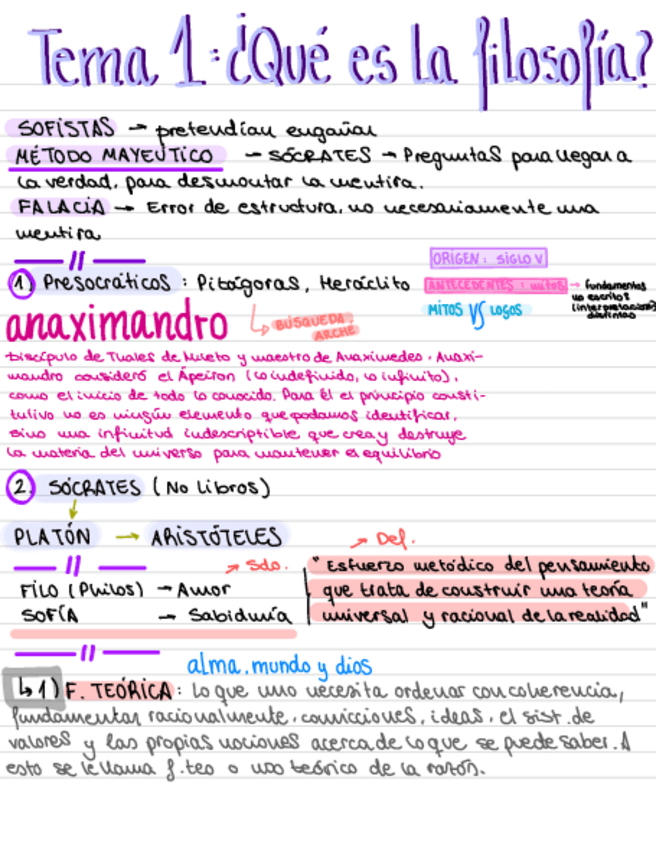 Tema 1: ¿Qué es la filosofía?
SOFISTAS → pretendían engañar
MÉTODO MAYEÚTICO → SÓCRATES → Preguntas para llegar a
la verdad, para desmontar la mentira.
FALACIA → Error de estructura, no necesariamente una
mentira
ORIGEN: SIGLO V
1) Presocráticos: Pitágoras, Heráclito
ANTECEDENTES: mitos → fundamentos
no escritos
(interpretaciones
distintas
MITOS VS LOGOS
anaximandro
BÚSQUEDA:
ARCHE
Discípulo de Thales de Mileto y maestro de Anaxímedes. Anaxi-
mandro consideró el Ápeiron (lo indefinido, lo infinito),
como el inicio de todo lo conocido. Para él el principio consti-
tutivo no es ningún elemento que podamos identificar,
sino una infinitud indescriptible que crea y destruye
la materia del universo para mantener el equilibrio
2. SÓCRATES (No Libros)
↓
PLATÓN → ARISTÓTELES
→ Def.
→ Sdo.
"Esfuerzo metódico del pensamiento
que trata de construir una teoría
universal y racional de la realidad"
FILO (Philos) → Amor
SOFÍA → Sabiduría
alma, mundo y dios
↳1) F. TEÓRICA: Lo que uno necesita ordenar con coherencia,
fundamentar racionalmente, convicciones, ideas, el sist. de
valores y las propias nociones acerca de lo que se puede saber. A
esto se le llama f. teo o uso teórico de la razón.